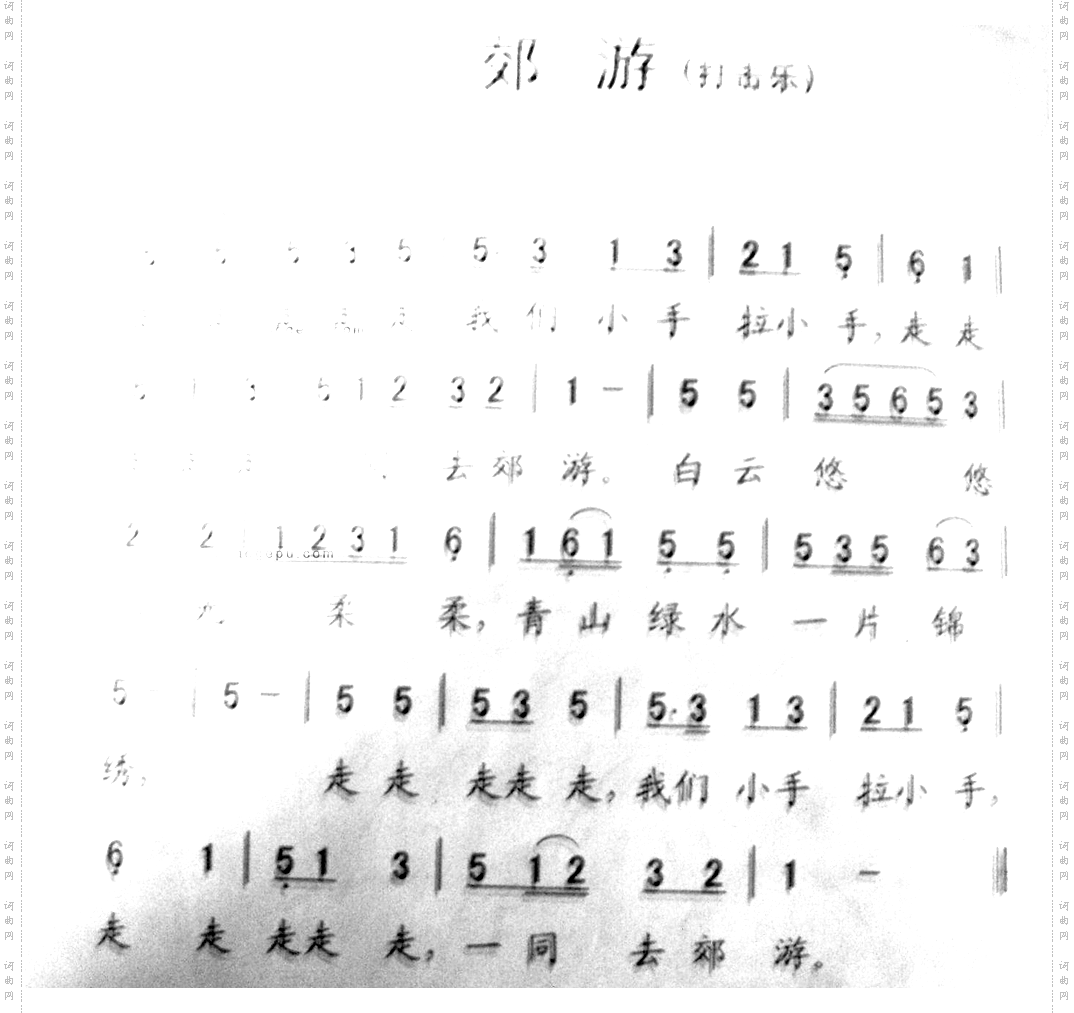 郊 游 (打击乐)
5 5 5 3 5 5· 3 1 3 | 2 1 5 | 6 1 |
走 我 们 小 手 拉 小 手, 走 走
5 1 3 5 1 2 3 2 | 1 - | 5 5 | 3 5 6 5 3 |
去 郊 游。 白 云 悠 悠
2 2 | 1 2 3 1 6 | 1 6 1 5 5 | 5 3 5 6 3 |
柔 柔, 青 山 绿 水 一 片 锦
5 - | 5 - | 5 5 | 5 3 5 | 5· 3 1 3 | 2 1 5 |
绣, 走 走 走 走 走, 我 们 小 手 拉 小 手,
6 1 | 5 1 3 | 5 1 2 3 2 | 1 - ‖
走 走 走 走 走, 一 同 去 郊 游。
词曲网